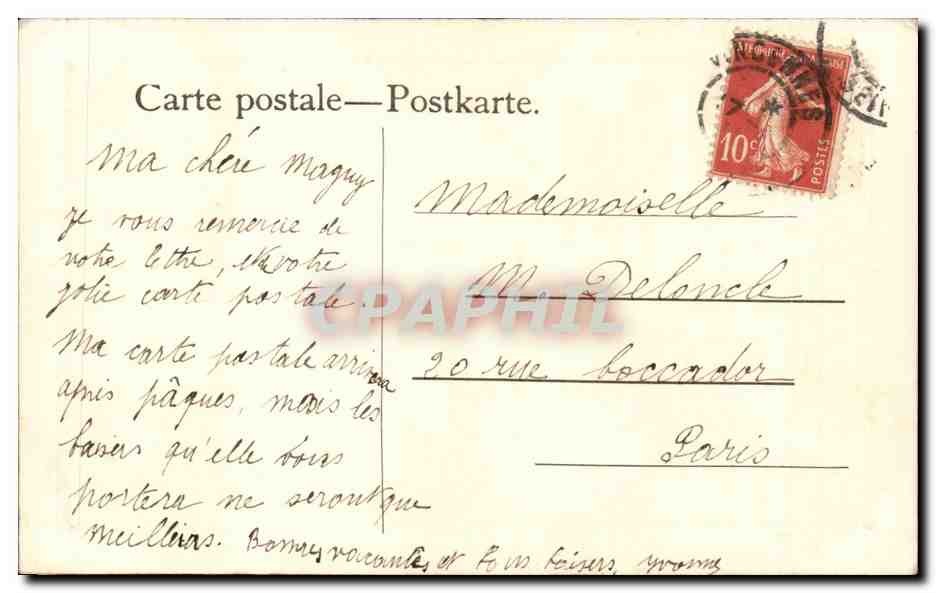 Carte postale—Postkarte.
Ma chére Maguy
je vous remercie de
votre lettre, et votre
jolie carte postale.
Ma carte postale arrivera
après pâques, mais les
baisers qu'elle vous
portera ne seront que
meilleurs. Bonnes vacances et bons baisers, Yvonne
Mademoiselle
M. Deloncle
20 rue boccador
Paris
10 c
POSTES
CPAPHIL